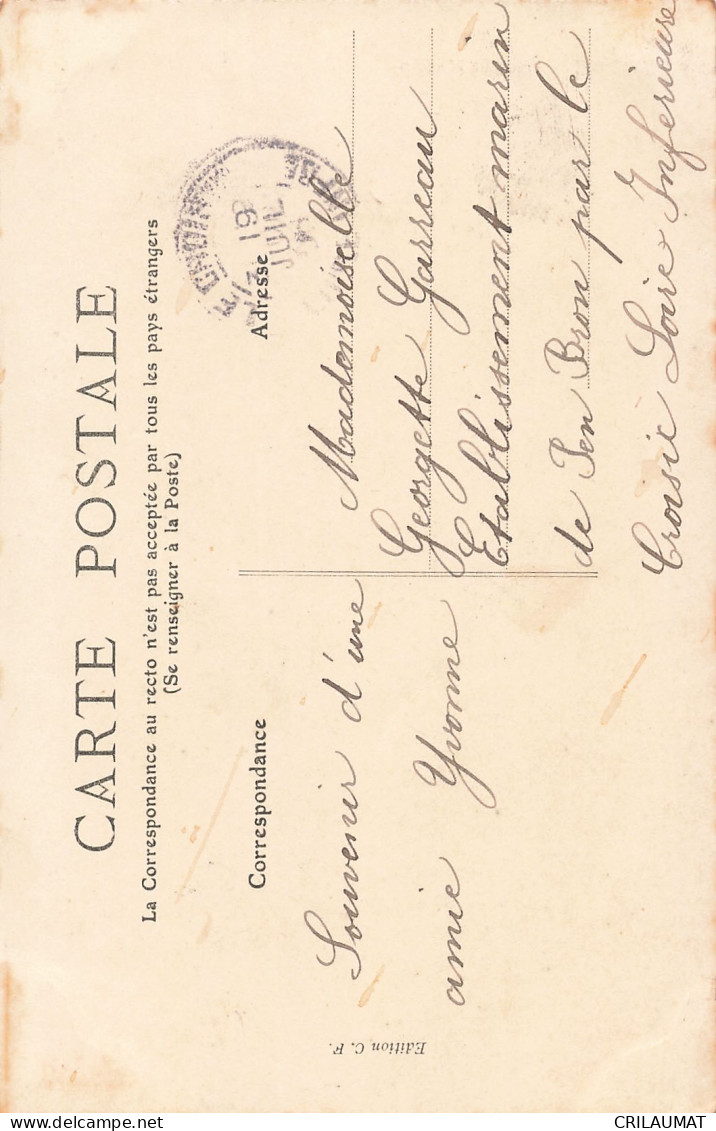 CARTE POSTALE
La Correspondance au recto n'est pas acceptée par tous les pays étrangers
(Se renseigner à la Poste)
Correspondance
Adresse
19
JUIL
Souvenir d'une
amie Yvonne
Mademoiselle
Georgette Garreau
Etablissement marin
de Pen Bron par le
Croisic Loire Inferieure
Edition C. F.
CRILAUMAT